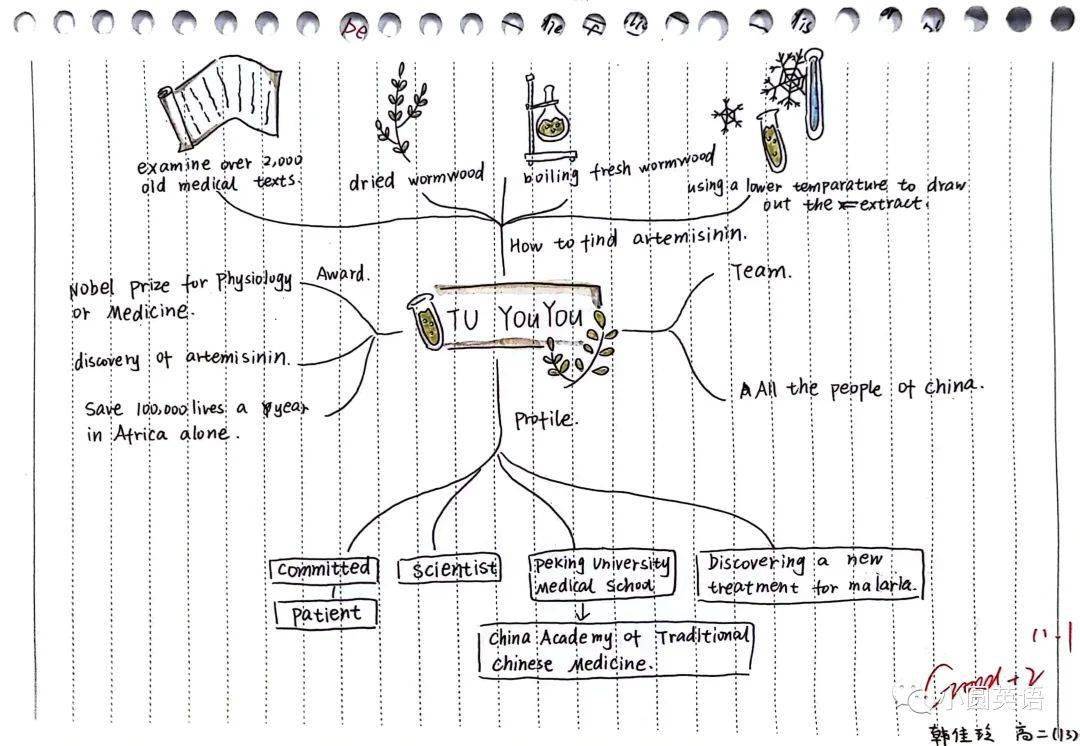 examine over 2,000
old medical texts.
dried wormwood
boiling fresh wormwood
using a lower temparature to draw
out the extract.
How to find artemisinin.
Award.
Nobel Prize for Physiology
or Medicine.
discovery of artemisinin.
Save 100,000 lives a year
in Africa alone.
TU YouYou
Team.
All the people of China.
Profile.
Committed
Patient
Scientist
Peking University
Medical School
China Academy of Traditional
Chinese Medicine.
Discovering a new
treatment for malaria.
11-1
Good +2
小圆英语
韩佳玲 高二(13)